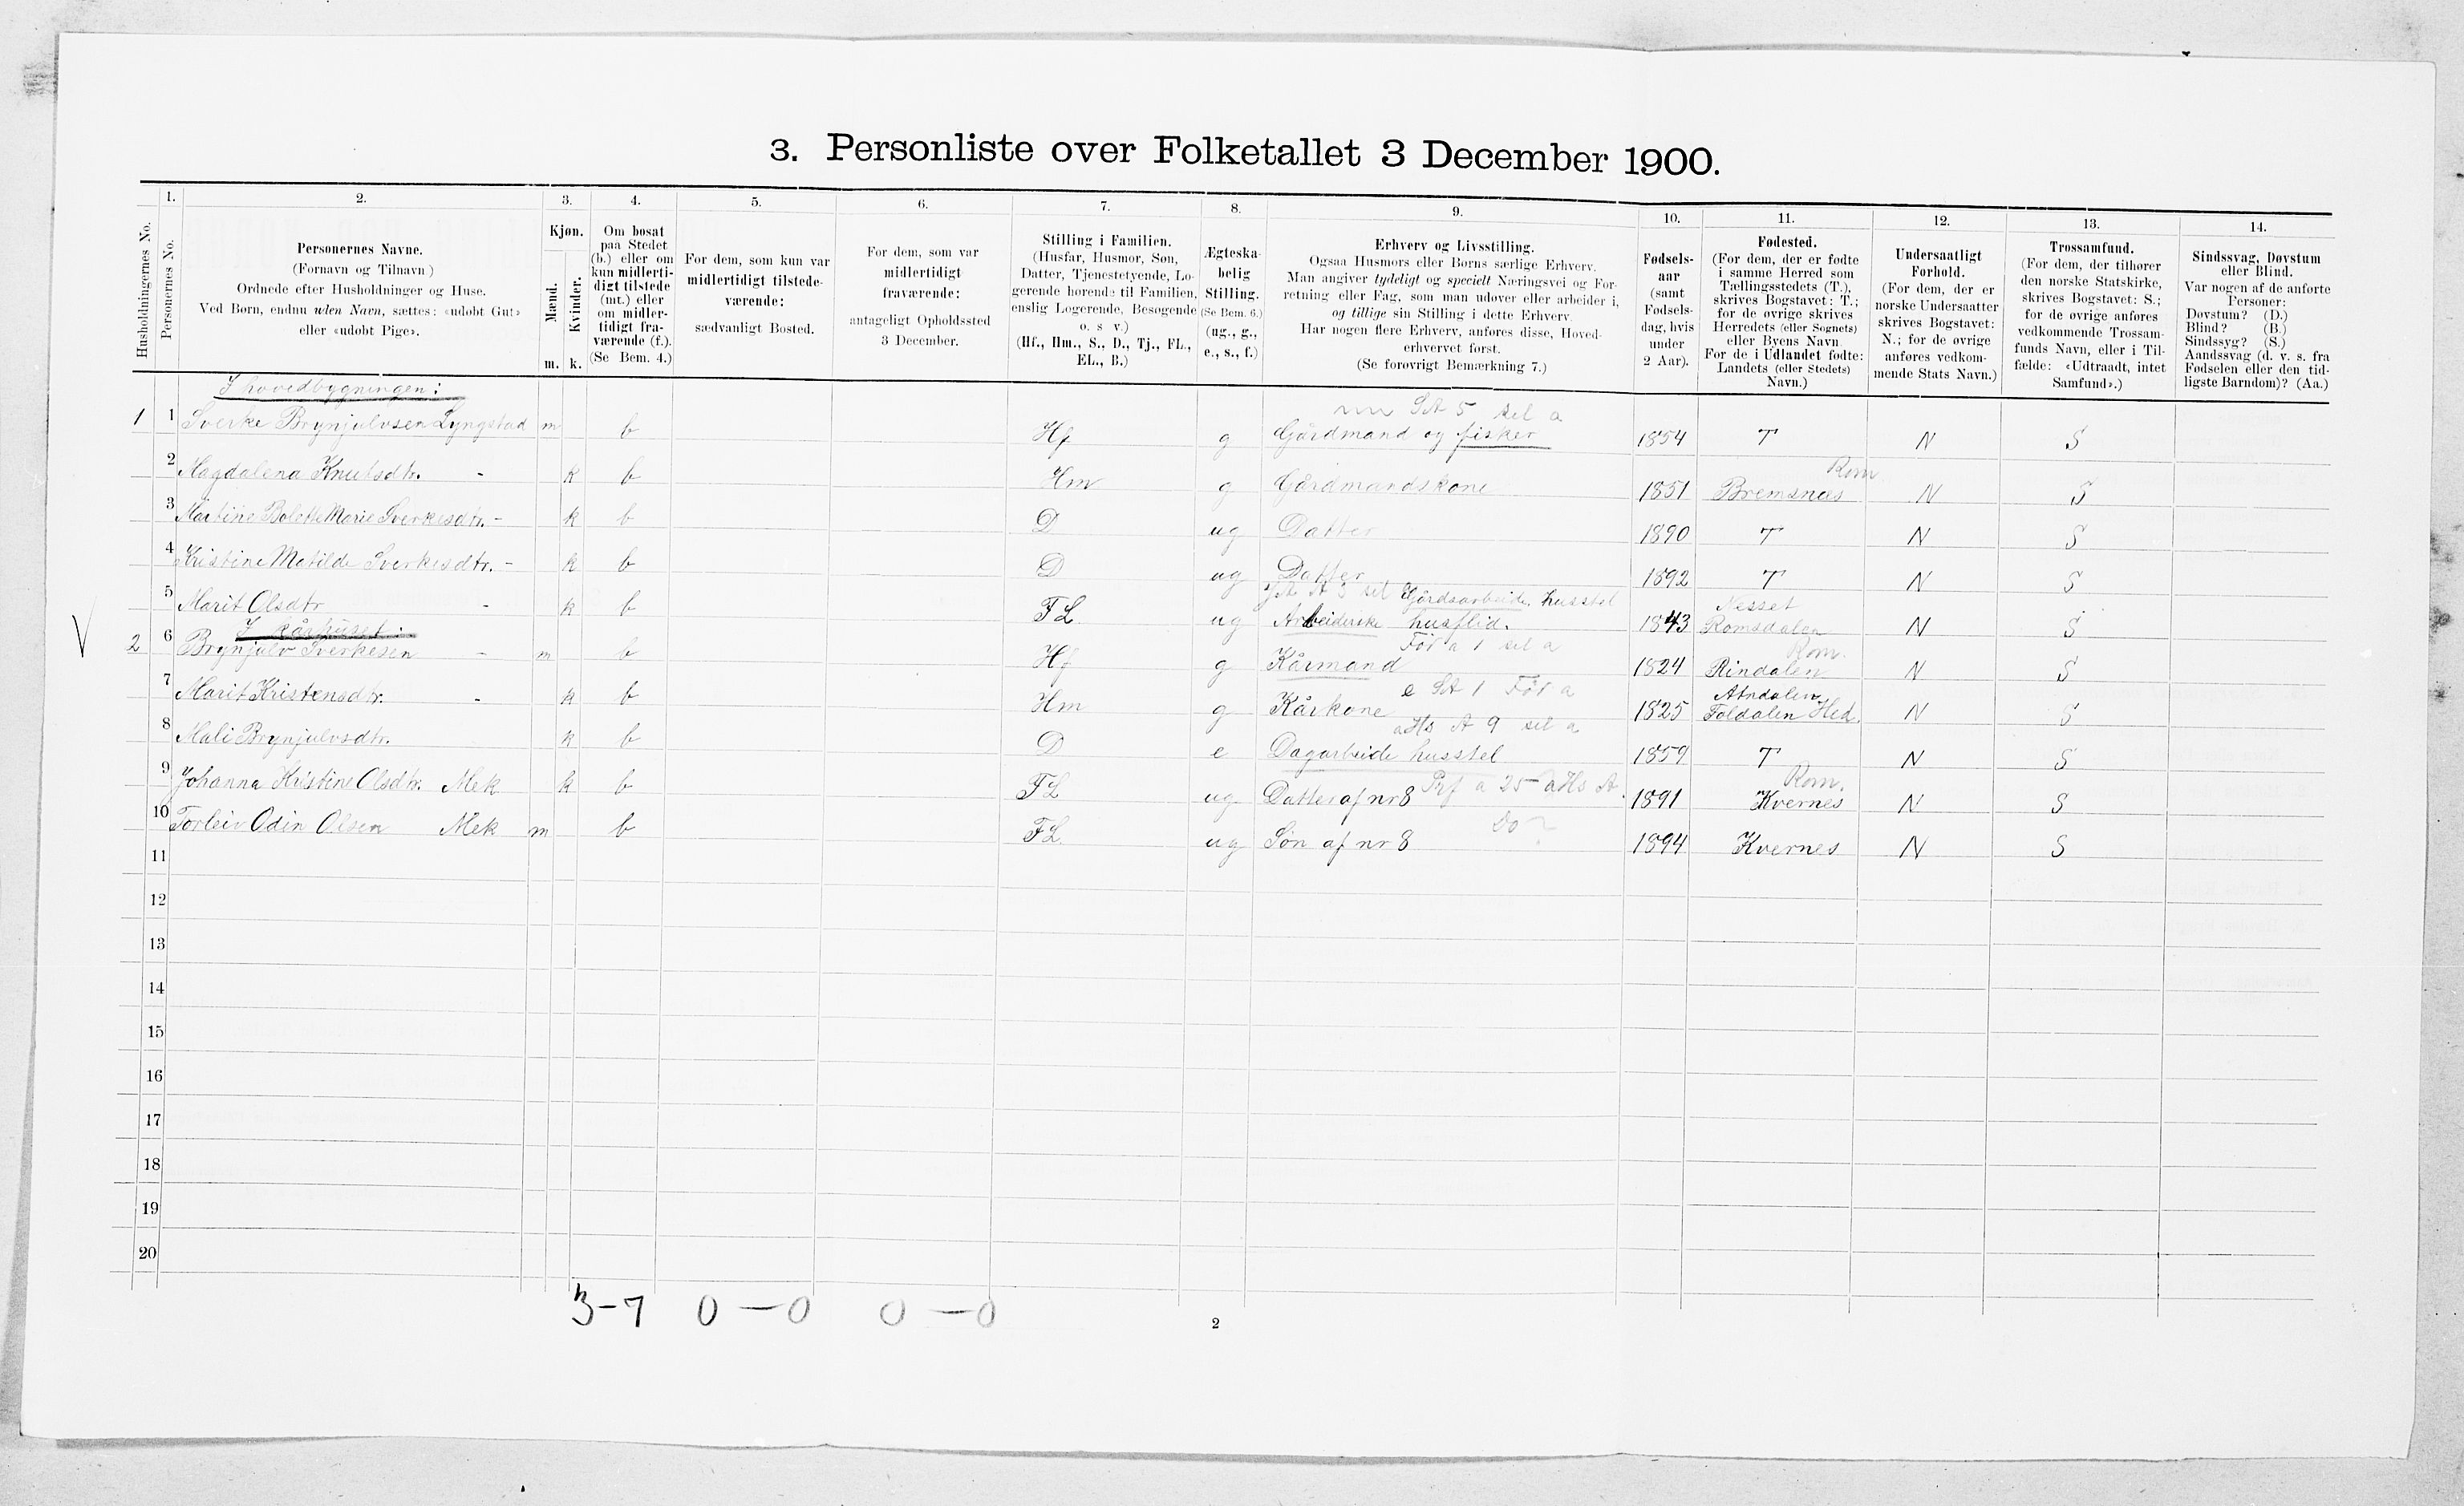 3. Personliste over Folketallet 3 December 1900.
1. 2. 3. 4. 5. 6. 7. 8. 9. 10. 11. 12. 13. 14.
Husholdningernes No.
Personernes No.
Personernes Navne.
(Fornavn og Tilnavn)
Ordnede efter Husholdninger og Huse.
Ved Børn, endnu uden Navn, sættes: «udøbt Gut»
eller «udøbt Pige».
Kjøn.
Mænd.
Kvinder.
m. k.
Om bosat
paa Stedet
(b.) eller om
kun midlerti-
digt tilstede
(mt.) eller
om midler-
tidigt fra-
værende (f.).
(Se Bem. 4.)
For dem, som kun var
midlertidigt tilstede-
værende:
sædvanligt Bosted.
For dem, som var
midlertidigt
fraværende:
antageligt Opholdssted
3 December.
Stilling i Familien.
(Husfar, Husmor, Søn,
Datter, Tjenestetyende, Lo-
gerende hørende til Familien,
enslig Logerende, Besøgende
o. s v.)
(Hf., Hm., S., D., Tj., FL.,
EL., B.)
Ægteska-
belig
Stilling.
(Se Bem. 6.)
(ug., g.,
e., s., f.)
Erhverv og Livsstilling.
Ogsaa Husmors eller Børns særlige Erhverv.
Man angiver tydeligt og specielt Næringsvei og For-
retning eller Fag, som man udøver eller arbeider i,
og tillige sin Stilling i dette Erhverv.
Har nogen flere Erhverv, anføres disse, Hoved-
erhvervet først.
(Se forøvrigt Bemærkning 7.)
Fødsels-
aar
(samt
Fødsels-
dag, hvis
under
2 Aar).
Fødested.
(For dem, der er fødte
i samme Herred som
Tællingsstedets (T.),
skrives Bogstavet: T.;
for de øvrige skrives
Herredets (eller Sognets)
eller Byens Navn
For de i Udlandet fødte:
Landets (eller Stedets)
Navn.)
Undersaatligt
Forhold.
(For dem, der er
norske Undersaatter
skrives Bogstavet:
N.; for de øvrige
anføres vedkom-
mende Stats Navn.)
Trossamfund.
(For dem, der tilhører
den norske Statskirke,
skrives Bogstavet: S.;
for de øvrige anføres
vedkommende Trossam-
funds Navn, eller i Til-
fælde: «Udtraadt, intet
Samfund».)
Sindssvag, Døvstum
eller Blind.
Var nogen af de anførte
Personer:
Døvstum? (D.)
Blind? (B.)
Sindssyg? (S.)
Aandssvag (d. v. s. fra
Fødselen eller den tid-
ligste Barndom)? (Aa.)
I hovedbygningen:
St 5 sel a
1 1 Sverke Brynjulvsen Lyngstad m b Hf g Gårdmand og fisker 1854 T N S
Rom
2 Magdalena Knutsdtr. - k b Hm g Gårdmandskone 1851 Bremsnes N S
3 Martine Bolette Marie Sverkesdtr. - k b D ug Datter 1890 T N S
4 Kristine Matilde Sverkesdtr. - k b D ug Datter 1892 T N S
Gårdsarbeide, husstel Nesset
5 Marit Olsdtr - k b FL ug Arbeiderske husflid. 1843 Romsdalen N S
I kårhuset: Før a 1 sel a Rom.
V 2 6 Brynjulv Sverkesen - m b Hf g Kårmand 1824 Rindalen N S
e St 1 Før a Atndalen
7 Marit Kristensdtr. - k b Hm g Kårkone 1825 Foldalen Hed. N S
aHs A 9 sel a
8 Mali Brynjulvsdtr. k b D e Dagarbeide husstel 1859 T N S
Rom.
9 Johanna Kristine Olsdtr. Mek k b FL ug Datter af nr 8 Prf a 25 aHs A 1891 Kvernes N S
Do
10 Torleiv Odin Olsen Mek m b FL ug Søn af nr 8 1894 Kvernes N S
11
12
13
14
15
16
17
18
19
20
3-7 0-0 0-0
2